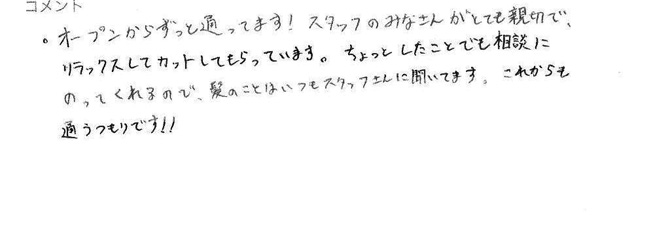 コメント
。オープンからずっと通ってます! スタッフのみなさんがとても親切で、
リラックスしてカットしてもらっています。ちょっとしたことでも相談に
のってくれるので、髪のことはいつもスタッフさんに聞いてます。これからも
通うつもりです!!